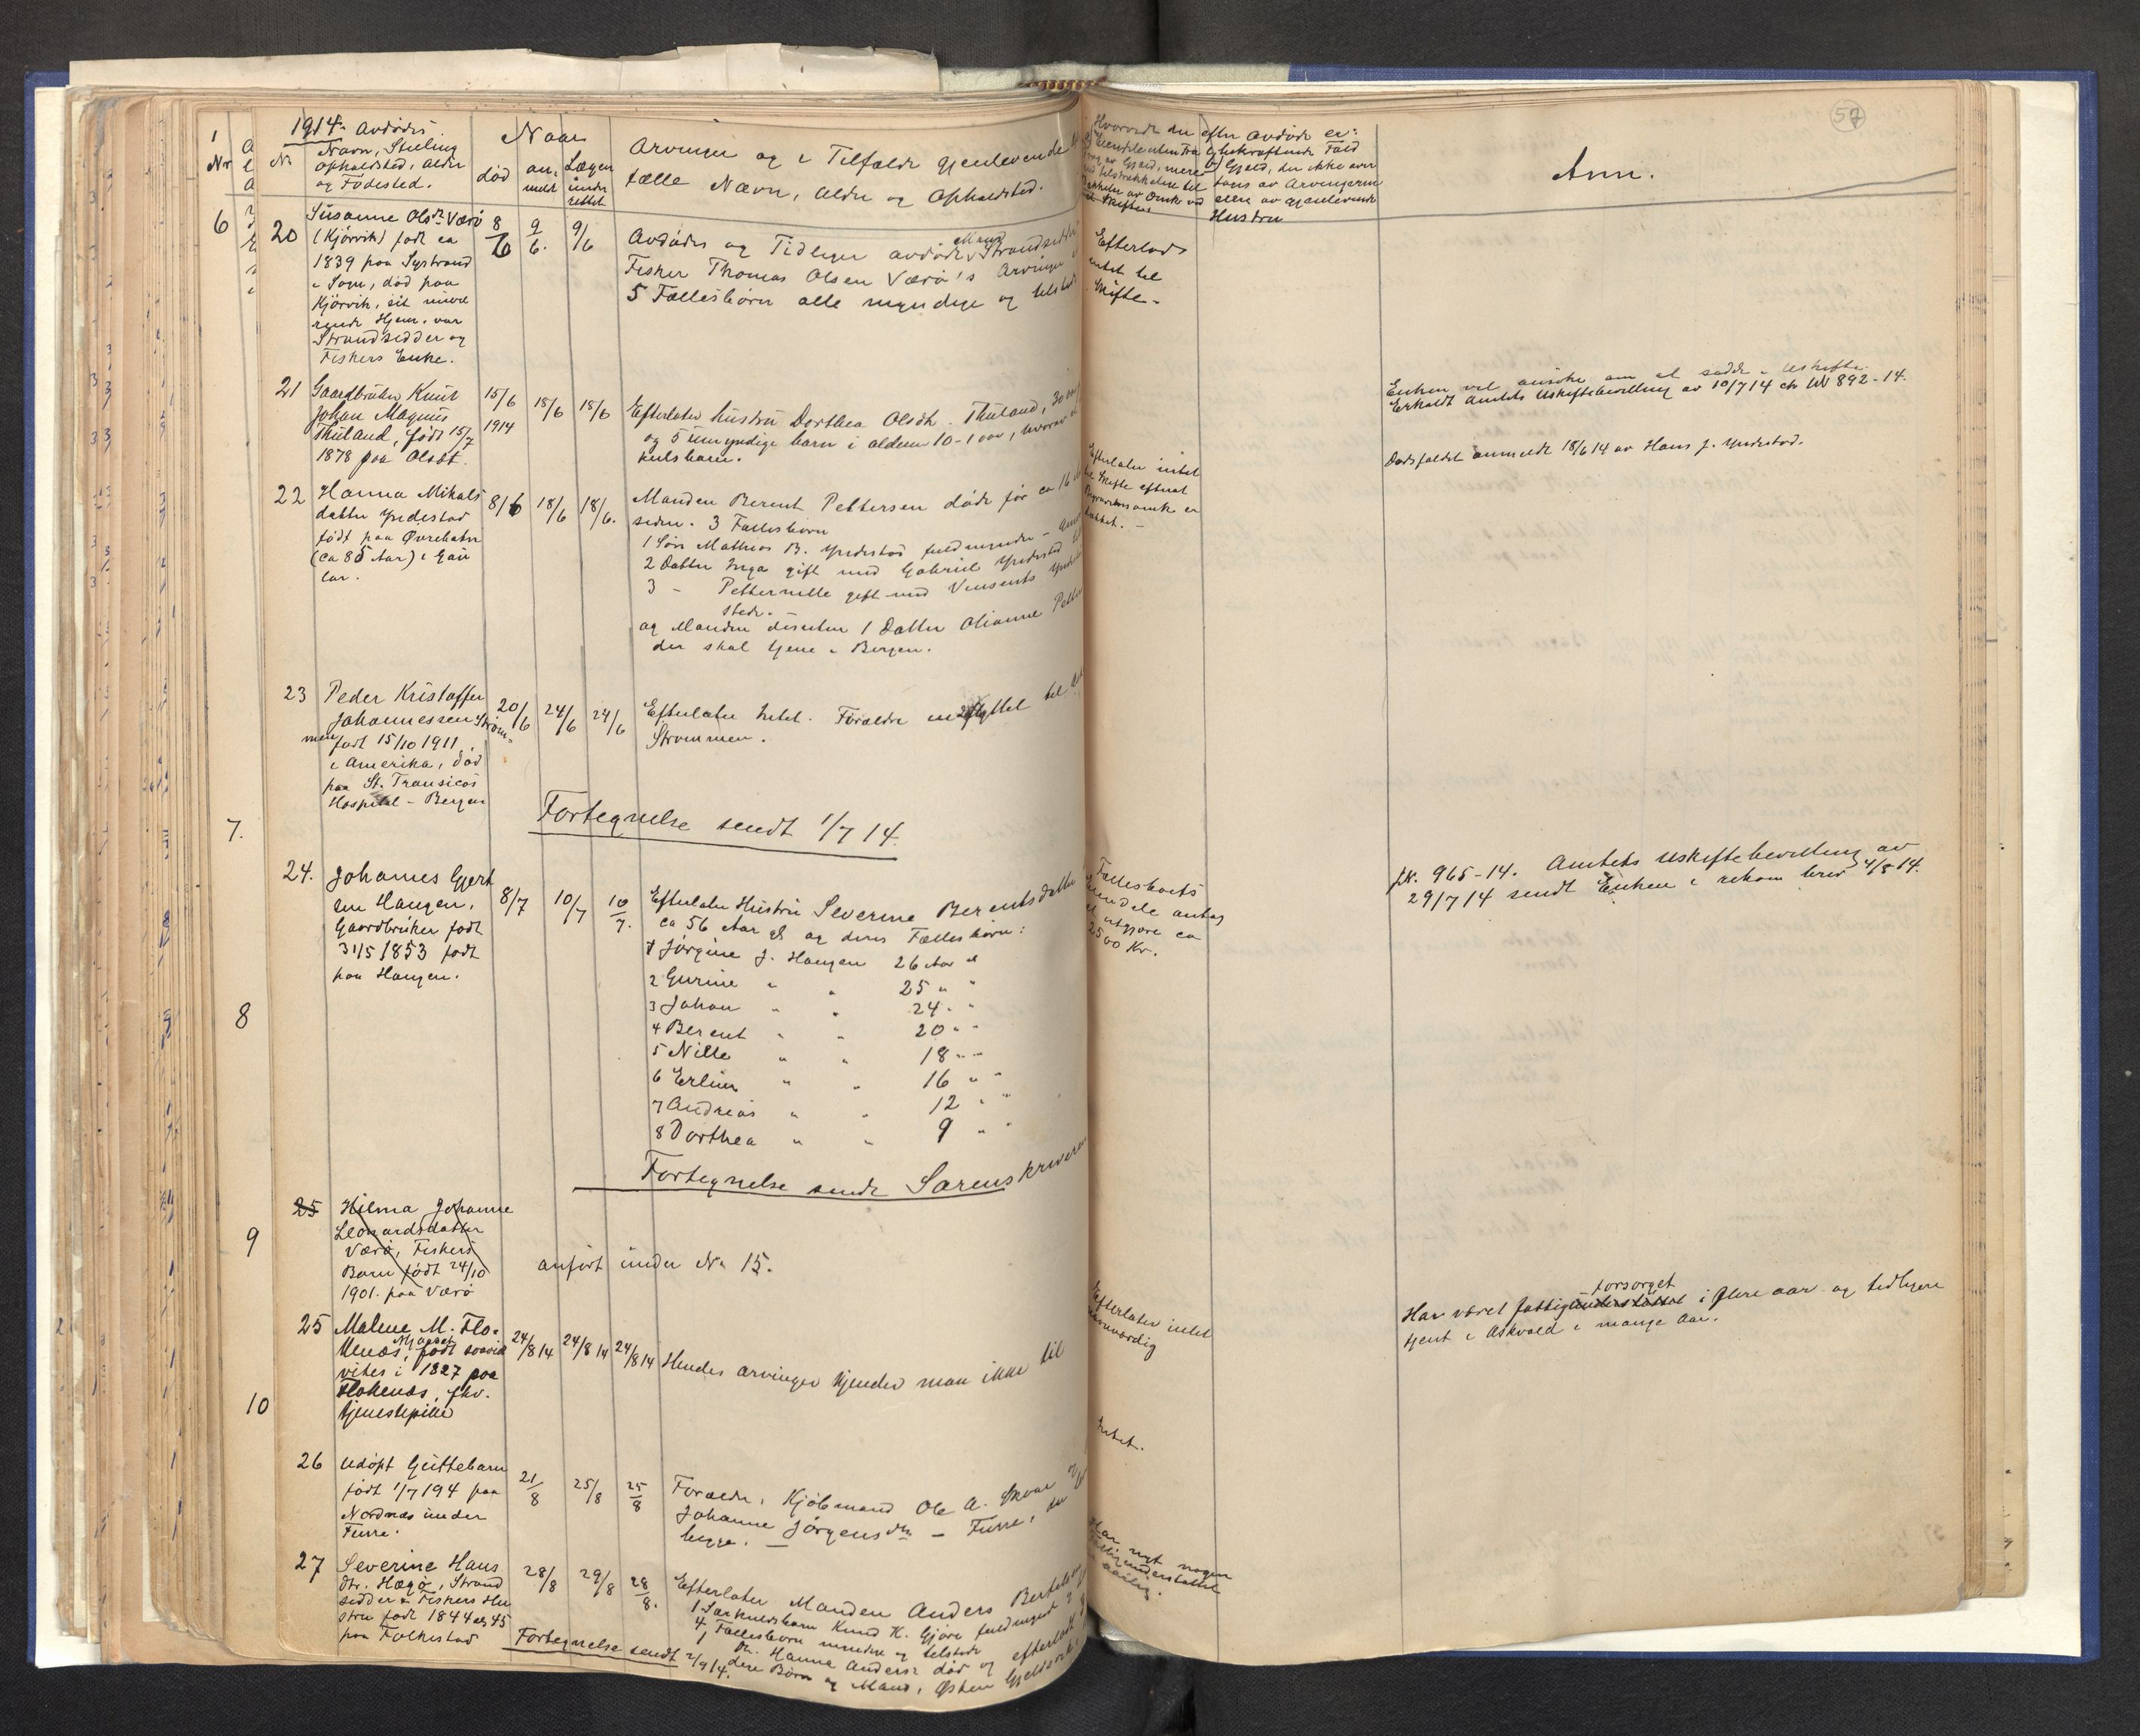 57
1914. Avdødes
Navn, Stilling
Opholdsted, Alder
og Fødested.
Nr
Naar
død
an-
meldt
Lægen
under
rettet
Arvinger og i Tilfælde gjenlevende
fælle Navn, Alder og Opholdsted.
Hvorvidt der efter Avdøde er:
Ann.
6
20
Susanne Olsdr Værø
(Kjørvik) født ca
1839 paa Systrand
i Sogn, død paa
Kjørvik, sit
Hjem. var
Strandsidder og
Fiskers Enke.
8/6
9/6.
9/6
Avdødes og Tidligere avdøde Mand Strandsidder
Fisker Thomas Olsen Værø's Arvinger
5 Fællesbørn alle myndige og tilstede
Efterlods
intet til
Skifte.-
21
Gaardbruker Knut
Johan Magnus
Thuland, født 15/7
1878 paa
15/6
1914
18/6
18/6
Efterlater hustru Dorthea Olsdtr. Thuland, 30 aar
og 5 umyndige barn i alderen 10-1 aar, hvorav
kulsbarn.
Enken vil ansøke om at sidde i Uskifte.
Erholdt Amtets Uskiftebevilling av 10/7 14 892-14.
Dødsfaldet anmeldt 18/6 14 av Hans J. Yndestad.
22
Hanna Mikals
datter Yndestad
født paa Øvrebotn
(ca 85 Aar) i Gau
lar.
8/6
18/6
18/6.
Manden Berent Pettersen døde for ca 16
siden. 3 Fællesbørn
1 Søn Mathias B. Yndestad fuldmyndig -
2 Datter Inga gift med Gabriel Yndestad
3 - Petternille gift med Vensents
stede.
og Manden desuten 1 Datter Olianne
der skal tjene i Bergen.
Efterlater intet
til Skifte efterat
er
dækket. -
23
Peder Kristoffer
Johannessen Strøm-
men født 15/10 1911
i Amerika, død
paa St. Fransicos
Hospital - Bergen
20/6
24/6
24/6
Efterlater Intet. Forældre flyttet til
Strommen.
Fortegnelse sendt 1/7 14.
7.
24.
Johannes Gjert
sen Haugen,
Gaardbruker født
31/5 1853 født
paa Haugen.
8/7
10/7
10/7.
Efterlater Hustru Severine Berentsdatter
ca 56 Aar gl og deres Fællesbørn:
1 Jørgine J. Haugen 26 Aar gl
2 Gurine " " 25 " "
3 Johan " " 24 " "
4 Berent " " 20 " "
5 Nille " " 18 " "
6 Erling " " 16 " "
7 Andreas " " 12 " "
8 Dorthea " " 9 " "
Fællesboets
eiendele antag
at utgjøre ca
2500 Kr.
jk. 965-14. Amtets Uskiftebevilling av
29/7 14 sendt Enken i rekom brev 4/8 14.
8
Fortegnelse sendt Sorenskriveren
25
Hilma Johanne
Leonardsdatter
Værø, Fiskers
Barn født 24/10
1901. paa Værø
anført under No 15.
9
25
Malene M. Flo-
kenæs, født saavidt
vites i 1827 paa
Flokenæs, fhv.
tjenestepike
24/8 14
24/8 14
24/8 14
Hendes arvinger kjender man ikke til
Efterlater intet
Har været fattigunderstøttet forsørget i flere aar og tidligere
tjent i Askvold i mange Aar.
10
26
Udøpt Guttebarn
født 1/7 194 paa
Nordnæs under
Furre.
21/8
25/8
25/8
Forældre, Kjøbmand Ole A.
Johanne Jørgensdtr - Furre,
begge. -
Intet.
27
Severine Hans
dtr. Hægø, Strand
sidder & Fiskers Hu
stru født 1844 elr 45
paa Folkestad
28/8
29/8
28/8.
Efterlater Manden Anders Bertelsen
1 Særkuldsbarn Knud K. Gjøre fuldmyndig
4 Fællesbørn myndige og tilstede
1 Dtr. Hanna Andersd død og efterlatt
dere Børn og Mand,
Har nyt nogen
Fattigunderstøttelse
aarlig.
Fortegnelse sendt 2/9 14.